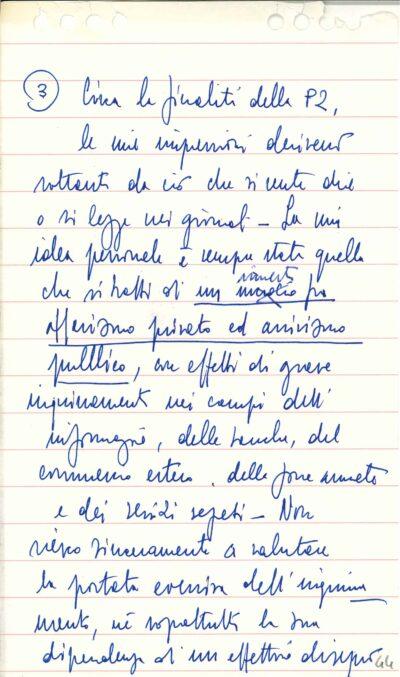 3 Circa le finalità della P2,
le mie impressioni derivano
soltanto da ciò che si sente dire
o si legge nei giornali – La mia
idea personale è sempre stata quella
che si tratti di un misto fra
affarismo privato ed arrivismo
pubblico, con effetti di grave
inquinamento nei campi dell'
informazione, delle banche, del
commercio estero, delle forze armate
e dei servizi segreti – Non
riesco sinceramente a valutare
la portata eversiva dell'inquina
mento, né soprattutto la sua
dipendenza di un effettivo disegno
44